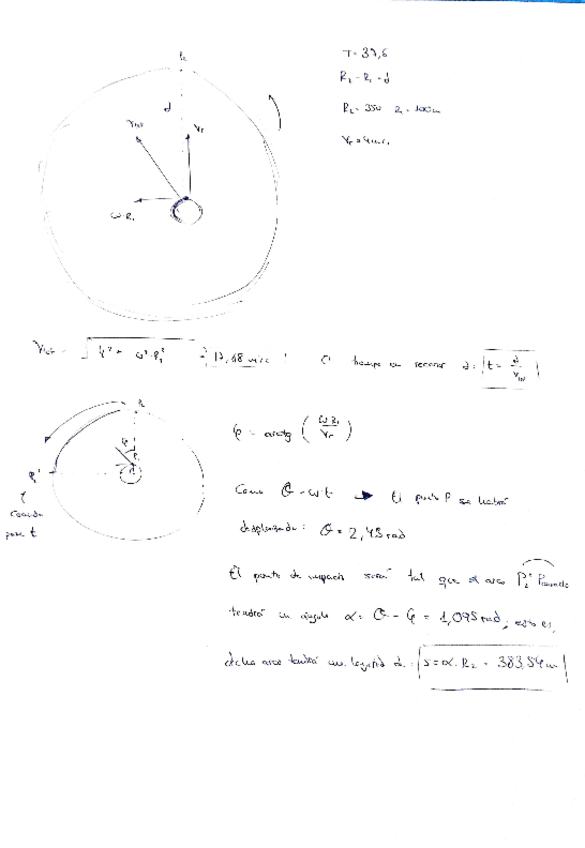 P₂
T = 37,6
R₂ - R₁ = d
d
R₂ = 350 R₁ = 100m
V_int V_r
V_r = 4m/s
ω·R₁
V_int = √(4² + ω²·R₁²) = 17,68 m/s El tiempo en recorrer d: t = d / V_int
P₂
φ = arctg (ωR₁ / V_r)
φ
P₂'
Como θ = ωt → El punto P se habrá
para t
desplazado: θ = 2,45 rad
El punto de impacto será tal que el arco P₂'
tendrá un ángulo α = θ - φ = 1,095 rad; esto es,
dicho arco tendrá una longitud d: s = α·R₂ = 383,54m